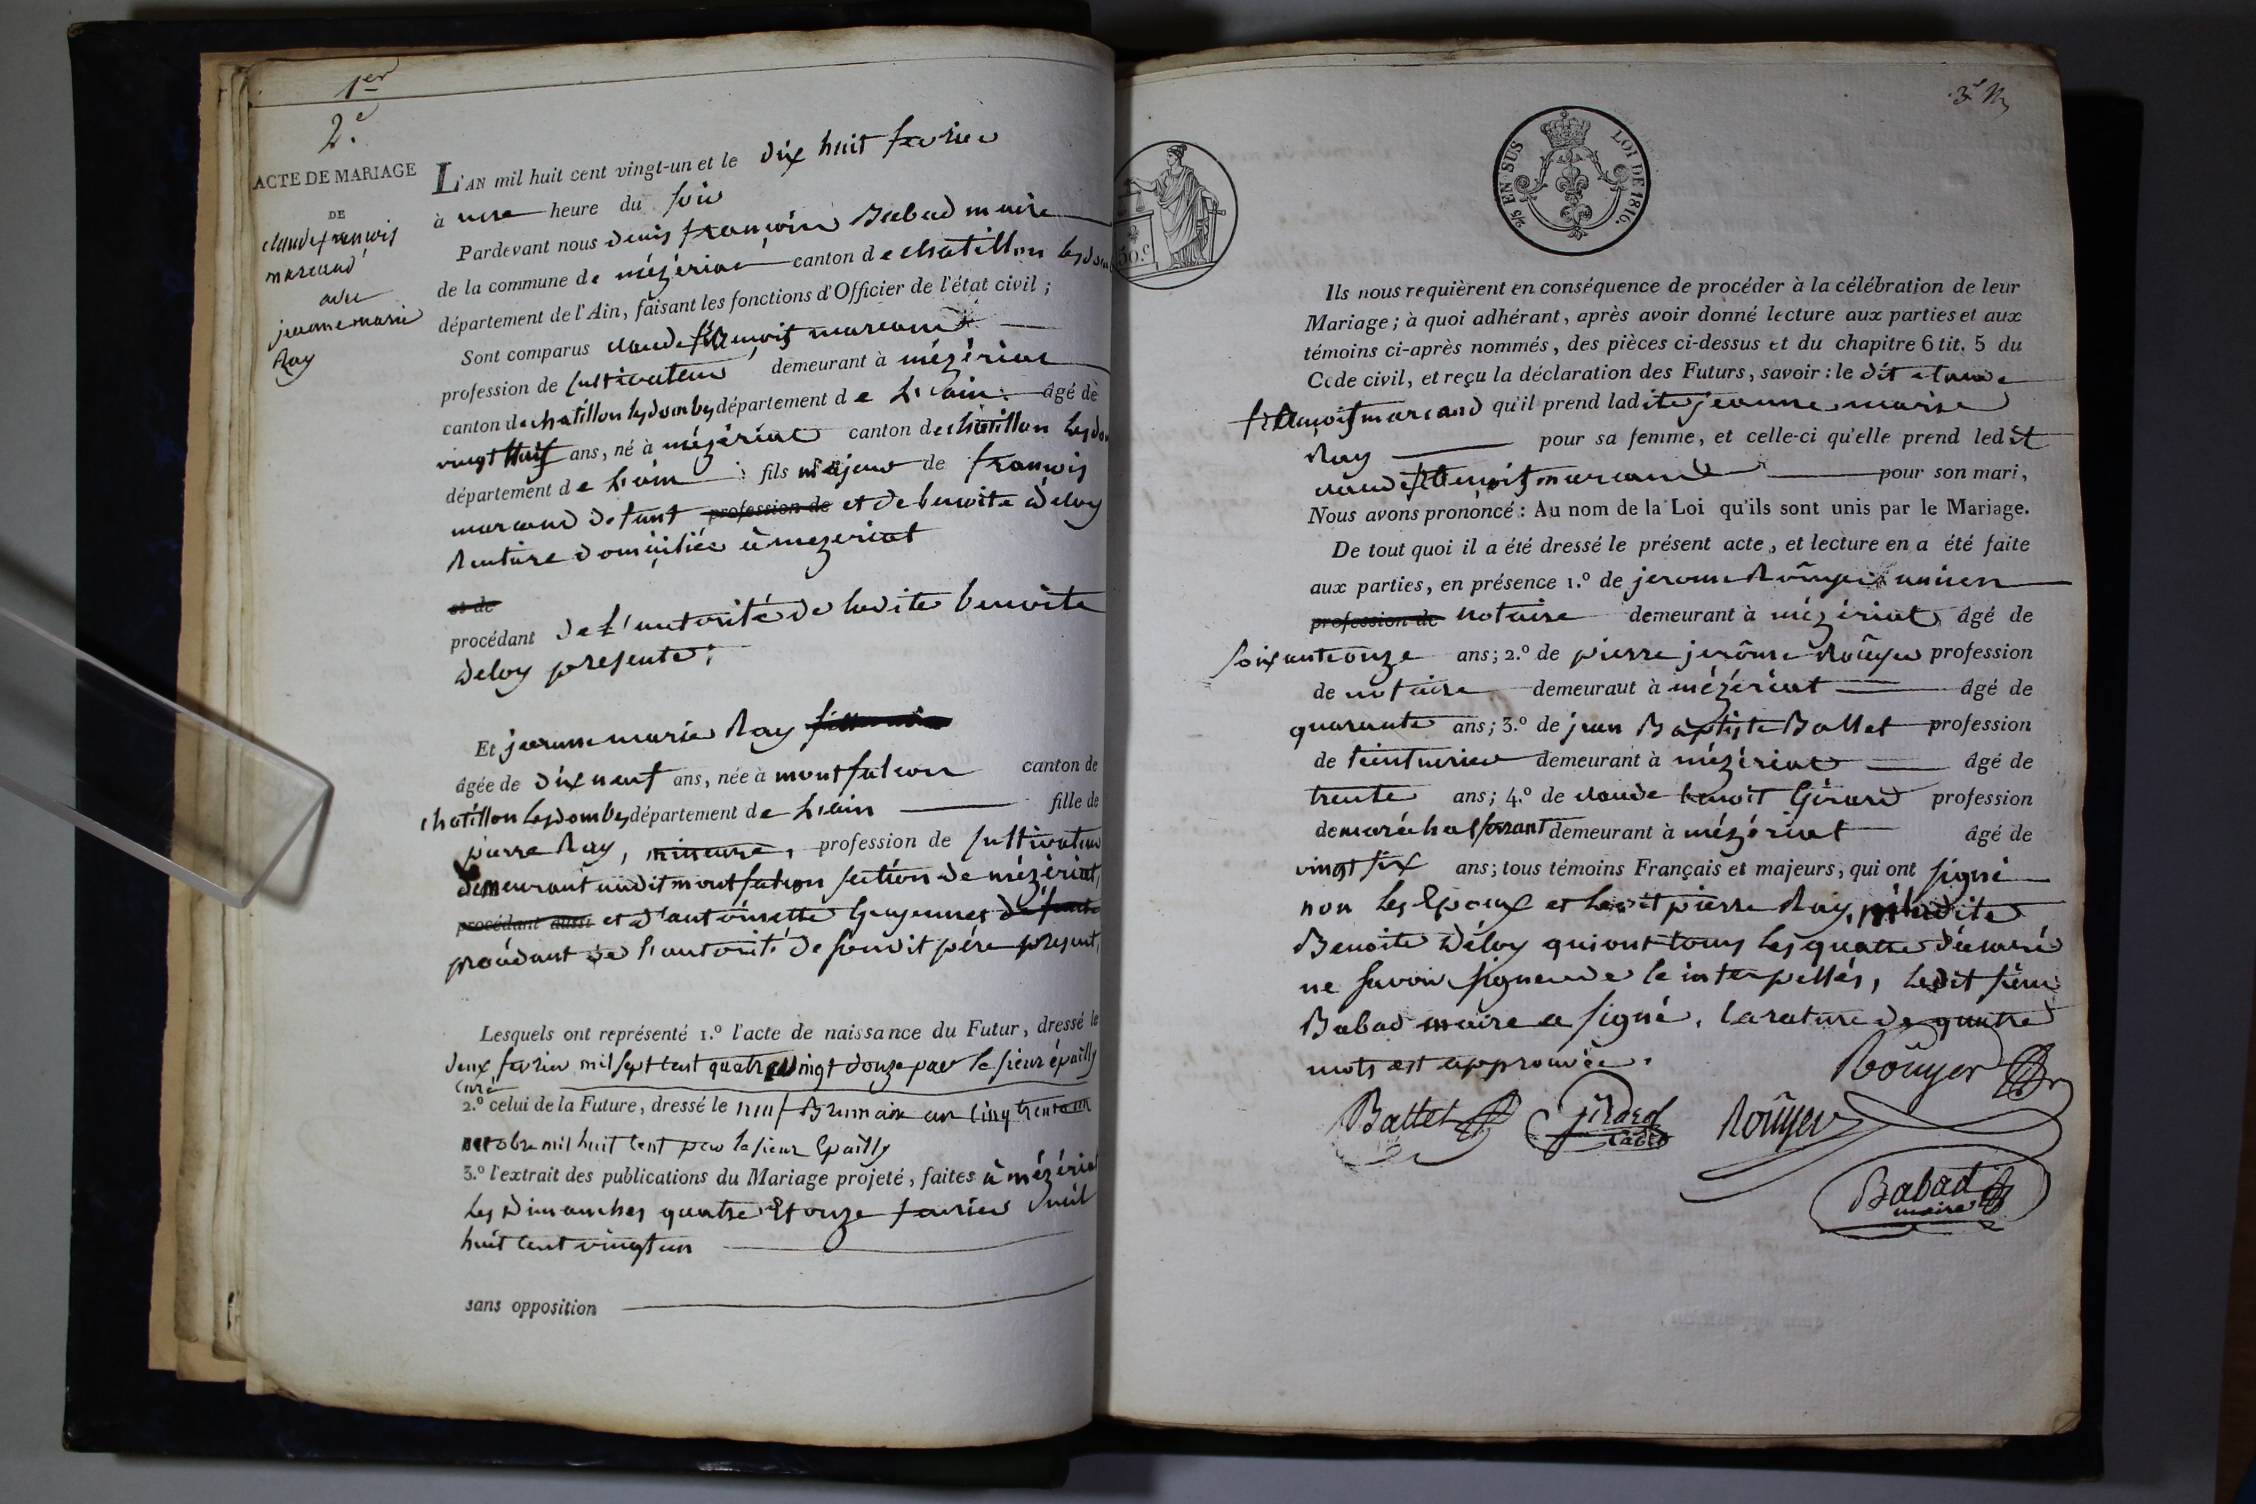 1er
2.e
ACTE DE MARIAGE
DE
claude françois
marcand
avec
jeanne marie
Ray
L'AN mil huit cent vingt-un et le dix huit fevrier
à une heure du soir
Pardevant nous denis françois Babad maire
de la commune de mézériat canton de chatillon lesdom
département de l'Ain, faisant les fonctions d'Officier de l'état civil ;
Sont comparus claude marcand
profession de cultivateur demeurant à mézériat
canton de chatillon lesdombes département de L'ain âgé de
vingt huit ans, né à mézériat canton de chatillon lesdo
département de L'ain ; fils majeur de françois
marcand defunt profession de et de benoite déloy
Rentière domiciliée à mezeriat
et de
procédant de l'autorité de ladite benoite
déloy presente ;
Et jeanne marie Ray
âgée de dix neuf ans, née à montfalcon canton de
chatillon lesdombes département de L'ain fille de
pierre Ray, mineure, profession de cultivateur
demeurant audit montfalcon section de mézériat,
procédant aussi et d'antoinette defunte
procédant de l'autorité de sondit père present,
Lesquels ont représenté 1.º l'acte de naissance du Futur, dressé le
deux fevrier mil sept cent quatre vingt douze par le sieur épailly
curé
2.º celui de la Future, dressé le neuf Brumaire an cinq trente un
octobre mil huit cent par le sieur Epailly
3.º l'extrait des publications du Mariage projeté, faites à mézériat
les Dimanches quatre Et onze fevrier mil
huit cent vingt un
sans opposition
30.c
5/5 EN SUS LOI DE 1816.
Ils nous requièrent en conséquence de procéder à la célébration de leur
Mariage ; à quoi adhérant, après avoir donné lecture aux parties et aux
témoins ci-après nommés, des pièces ci-dessus et du chapitre 6 tit. 5 du
Code civil, et reçu la déclaration des Futurs, savoir : le dit claude
marcand qu'il prend ladite jeanne marie
Ray pour sa femme, et celle-ci qu'elle prend ledit
claude marcand pour son mari,
Nous avons prononcé : Au nom de la Loi qu'ils sont unis par le Mariage.
De tout quoi il a été dressé le présent acte, et lecture en a été faite
aux parties, en présence 1.º de jerome Roüyer ancien
profession de notaire demeurant à mézériat âgé de
soixante onze ans ; 2.º de pierre jerôme Roüyer profession
de notaire demeurant à mézériat âgé de
quarante ans ; 3.º de jean Baptiste Ballet profession
de teinturier demeurant à mézériat âgé de
trente ans ; 4.º de claude benoit Girard profession
de maréchal ferrant demeurant à mézériat âgé de
vingt six ans ; tous témoins Français et majeurs, qui ont signé
non les Epoux et ledit pierre Ray, ladite
Benoite déloy qui ont tous les quatre déclaré
ne savoir signer de ce interpellés, ledit sieur
Babad maire a signé. la rature de quatre
mots est approuvée.
Roüyer
Ballet Girard Cadet Roüyer
Babad
maire